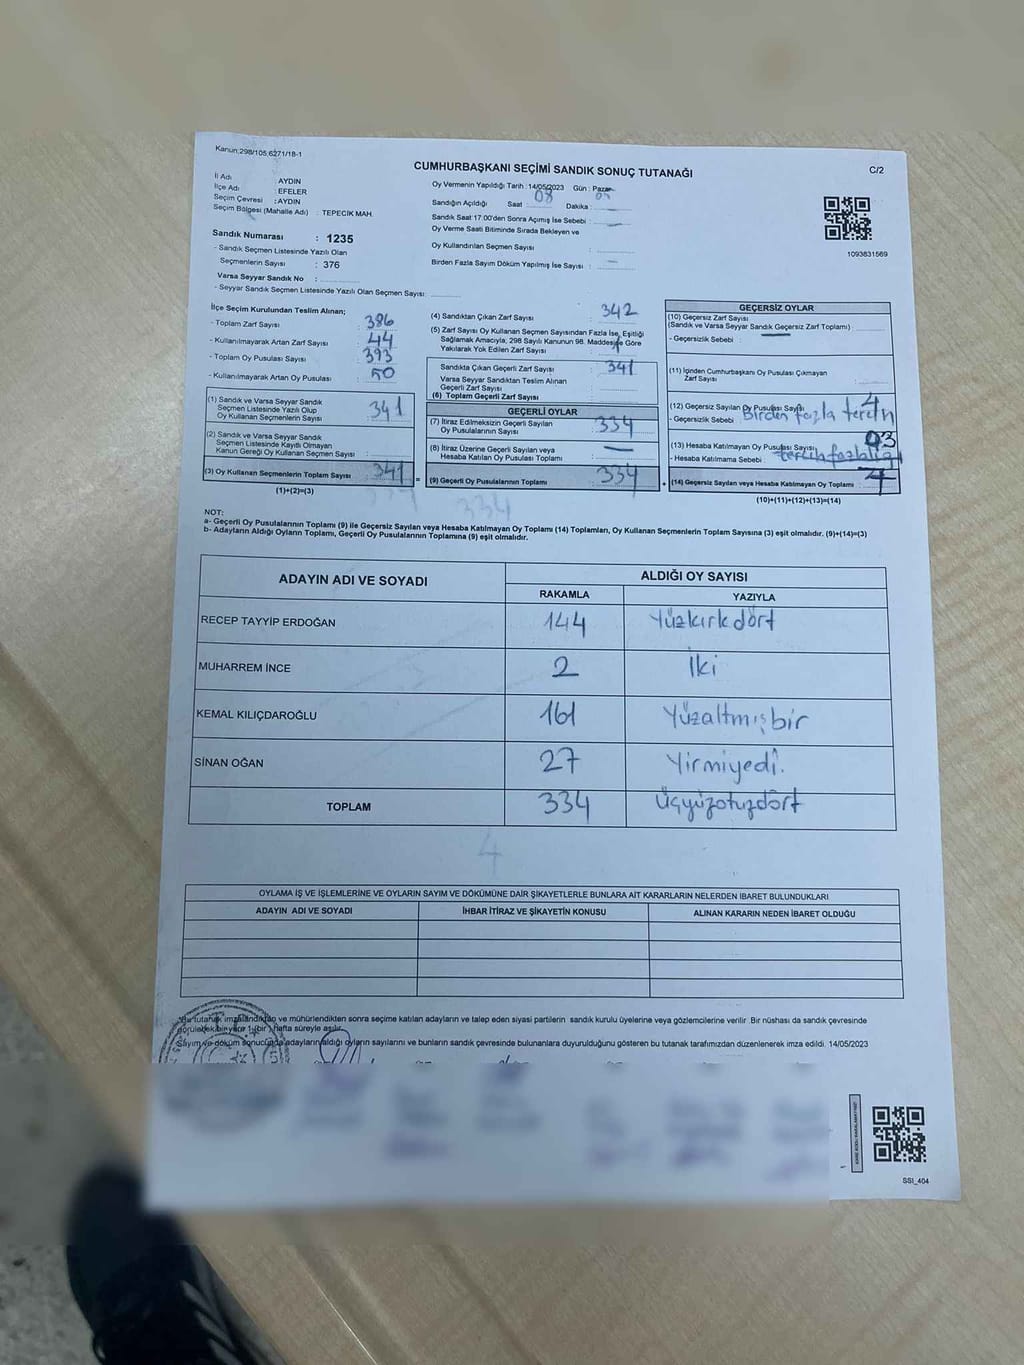 Kanun:298/105;6271/18-1
CUMHURBAŞKANI SEÇİMİ SANDIK SONUÇ TUTANAĞI
C/2
İl Adı : AYDIN
İlçe Adı : EFELER
Seçim Çevresi : AYDIN
Seçim Bölgesi (Mahalle Adı) : TEPECİK MAH.
Sandık Numarası : 1235
- Sandık Seçmen Listesinde Yazılı Olan
Seçmenlerin Sayısı : 376
Varsa Seyyar Sandık No :
- Seyyar Sandık Seçmen Listesinde Yazılı Olan Seçmen Sayısı:
Oy Vermenin Yapıldığı Tarih : 14/05/2023 Gün : Pazar
Sandığın Açıldığı Saat : 08 Dakika :
Sandık Saat:17.00'den Sonra Açılmış İse Sebebi :
Oy Verme Saati Bitiminde Sırada Bekleyen ve
Oy Kullandırılan Seçmen Sayısı :
Birden Fazla Sayım Döküm Yapılmış İse Sayısı : —
1093831569
İlçe Seçim Kurulundan Teslim Alınan;
- Toplam Zarf Sayısı : 386
- Kullanılmayarak Artan Zarf Sayısı : 44
- Toplam Oy Pusulası Sayısı : 393
- Kullanılmayarak Artan Oy Pusulası : 50
(1) Sandık ve Varsa Seyyar Sandık
Seçmen Listesinde Yazılı Olup
Oy Kullanan Seçmenlerin Sayısı : 341
(2) Sandık ve Varsa Seyyar Sandık
Seçmen Listesinde Kayıtlı Olmayan
Kanun Gereği Oy Kullanan Seçmen Sayısı :
(3) Oy Kullanan Seçmenlerin Toplam Sayısı : 341
(1)+(2)=(3)
(4) Sandıktan Çıkan Zarf Sayısı : 342
(5) Zarf Sayısı Oy Kullanan Seçmen Sayısından Fazla İse, Eşitliği
Sağlamak Amacıyla, 298 Sayılı Kanunun 98. Maddesine Göre
Yakılarak Yok Edilen Zarf Sayısı : 1
Sandıkta Çıkan Geçerli Zarf Sayısı : 341
Varsa Seyyar Sandıktan Teslim Alınan
Geçerli Zarf Sayısı :
(6) Toplam Geçerli Zarf Sayısı :
GEÇERLİ OYLAR
(7) İtiraz Edilmeksizin Geçerli Sayılan
Oy Pusulalarının Sayısı : 334
(8) İtiraz Üzerine Geçerli Sayılan veya
Hesaba Katılan Oy Pusulaları Toplamı : —
(9) Geçerli Oy Pusulalarının Toplamı : 334
334
GEÇERSİZ OYLAR
(10) Geçersiz Zarf Sayısı
(Sandık ve Varsa Seyyar Sandık Geçersiz Zarf Toplamı) :
- Geçersizlik Sebebi : —
(11) İçinden Cumhurbaşkanı Oy Pusulası Çıkmayan
Zarf Sayısı :
(12) Geçersiz Sayılan Oy Pusulası Sayısı : 4
- Geçersizlik Sebebi : Birden fazla tercih
(13) Hesaba Katılmayan Oy Pusulası Sayısı : 03
- Hesaba Katılmama Sebebi : tercih fazlalığı
(14) Geçersiz Sayılan veya Hesaba Katılmayan Oy Toplamı : 7
(10)+(11)+(12)+(13)=(14)
NOT:
a- Geçerli Oy Pusulalarının Toplamı (9) ile Geçersiz Sayılan veya Hesaba Katılmayan Oy Toplamı (14) Toplamları, Oy Kullanan Seçmenlerin Toplam Sayısına (3) eşit olmalıdır. (9)+(14)=(3)
b- Adayların Aldığı Oyların Toplamı, Geçerli Oy Pusulalarının Toplamına (9) eşit olmalıdır.
ADAYIN ADI VE SOYADI
ALDIĞI OY SAYISI
RAKAMLA YAZIYLA
RECEP TAYYİP ERDOĞAN 144 Yüzkırkdört
MUHARREM İNCE 2 İki
KEMAL KILIÇDAROĞLU 161 Yüzaltmışbir
SİNAN OĞAN 27 Yirmiyedi.
TOPLAM 334 Üçyüzotuzdört
4
OYLAMA İŞ VE İŞLEMLERİNE VE OYLARIN SAYIM VE DÖKÜMÜNE DAİR ŞİKAYETLERLE BUNLARA AİT KARARLARIN NELERDEN İBARET BULUNDUKLARI
ADAYIN ADI VE SOYADI İHBAR İTİRAZ VE ŞİKAYETİN KONUSU ALINAN KARARIN NEDEN İBARET OLDUĞU
*Bu tutanak imzalandıktan ve mühürlendikten sonra seçime katılan adayların ve talep eden siyasi partilerin sandık kurulu üyelerine veya gözlemcilerine verilir .Bir nüshası da sandık çevresinde
görülebilen bir yere 1 (bir ) hafta süreyle asılır.
*Sayım ve döküm sonucunda adayların aldığı oyların sayılarını ve bunların sandık çevresinde bulunanlara duyurulduğunu gösteren bu tutanak tarafımızdan düzenlenerek imza edildi. 14/05/2023
SSI_404